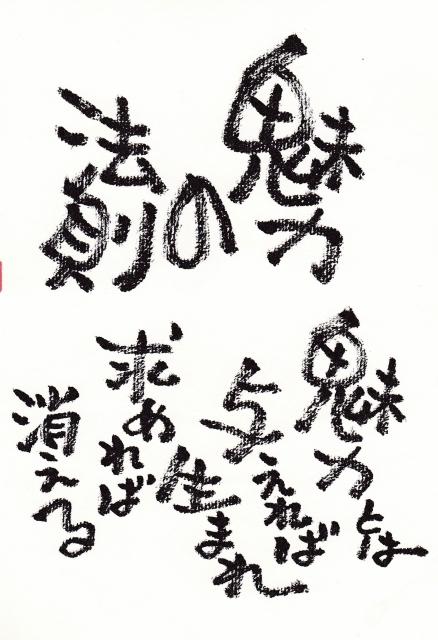 魅力
の
法則
魅力とは
与えれば
生まれ
求めれば
消える